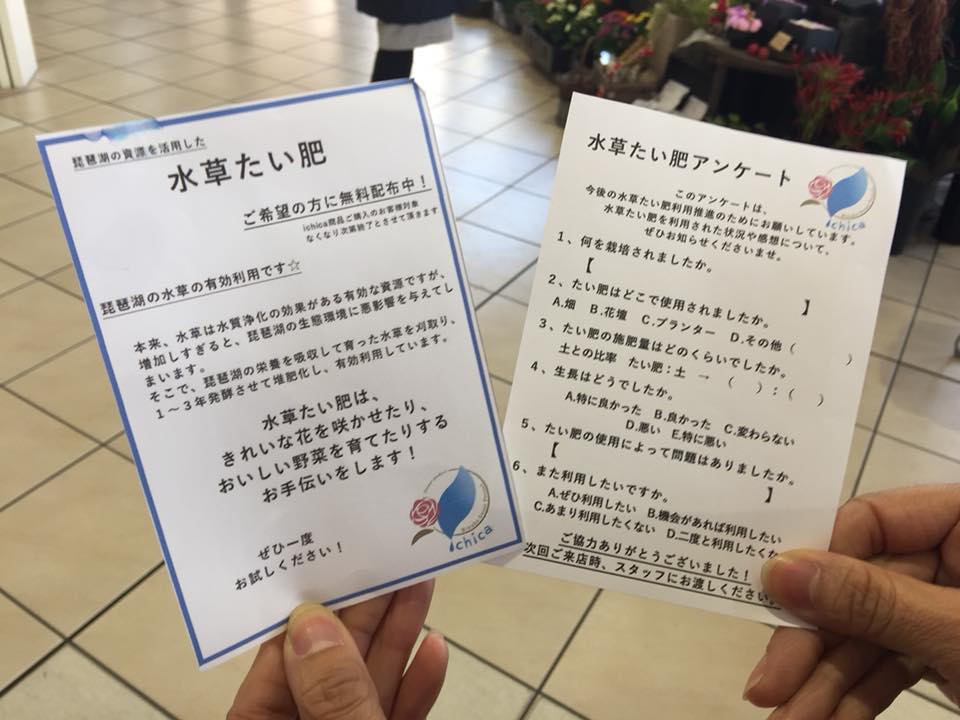 琵琶湖の資源を活用した
水草たい肥
ご希望の方に無料配布中！
ichica商品ご購入のお客様対象
なくなり次第終了とさせて頂きます
琵琶湖の水草の有効利用です☆
本来、水草は水質浄化の効果がある有効な資源ですが、
増加しすぎると、琵琶湖の生態環境に悪影響を与えてし
まいます。
そこで、琵琶湖の栄養を吸収して育った水草を刈取り、
１～３年発酵させて堆肥化し、有効利用しています。
水草たい肥は、
きれいな花を咲かせたり、
おいしい野菜を育てたりする
お手伝いをします！
ぜひ一度
お試しください！
ichica
水草たい肥アンケート
ichica
このアンケートは、
今後の水草たい肥利用推進のためにお願いしています。
水草たい肥を利用された状況や感想について、
ぜひお知らせくださいませ。
１、何を栽培されましたか。
【 】
２、たい肥はどこで使用されましたか。
A.畑 B.花壇 C.プランター D.その他（ ）
３、たい肥の施肥量はどのくらいでしたか。
土との比率 たい肥：土 → （ ）：（ ）
４、生長はどうでしたか。
A.特に良かった B.良かった C.変わらない
D.悪い E.特に悪い
５、たい肥の使用によって問題はありましたか。
【 】
６、また利用したいですか。
A.ぜひ利用したい B.機会があれば利用したい
C.あまり利用したくない D.二度と利用したくな
ご協力ありがとうございました！
次回ご来店時、スタッフにお渡しください。